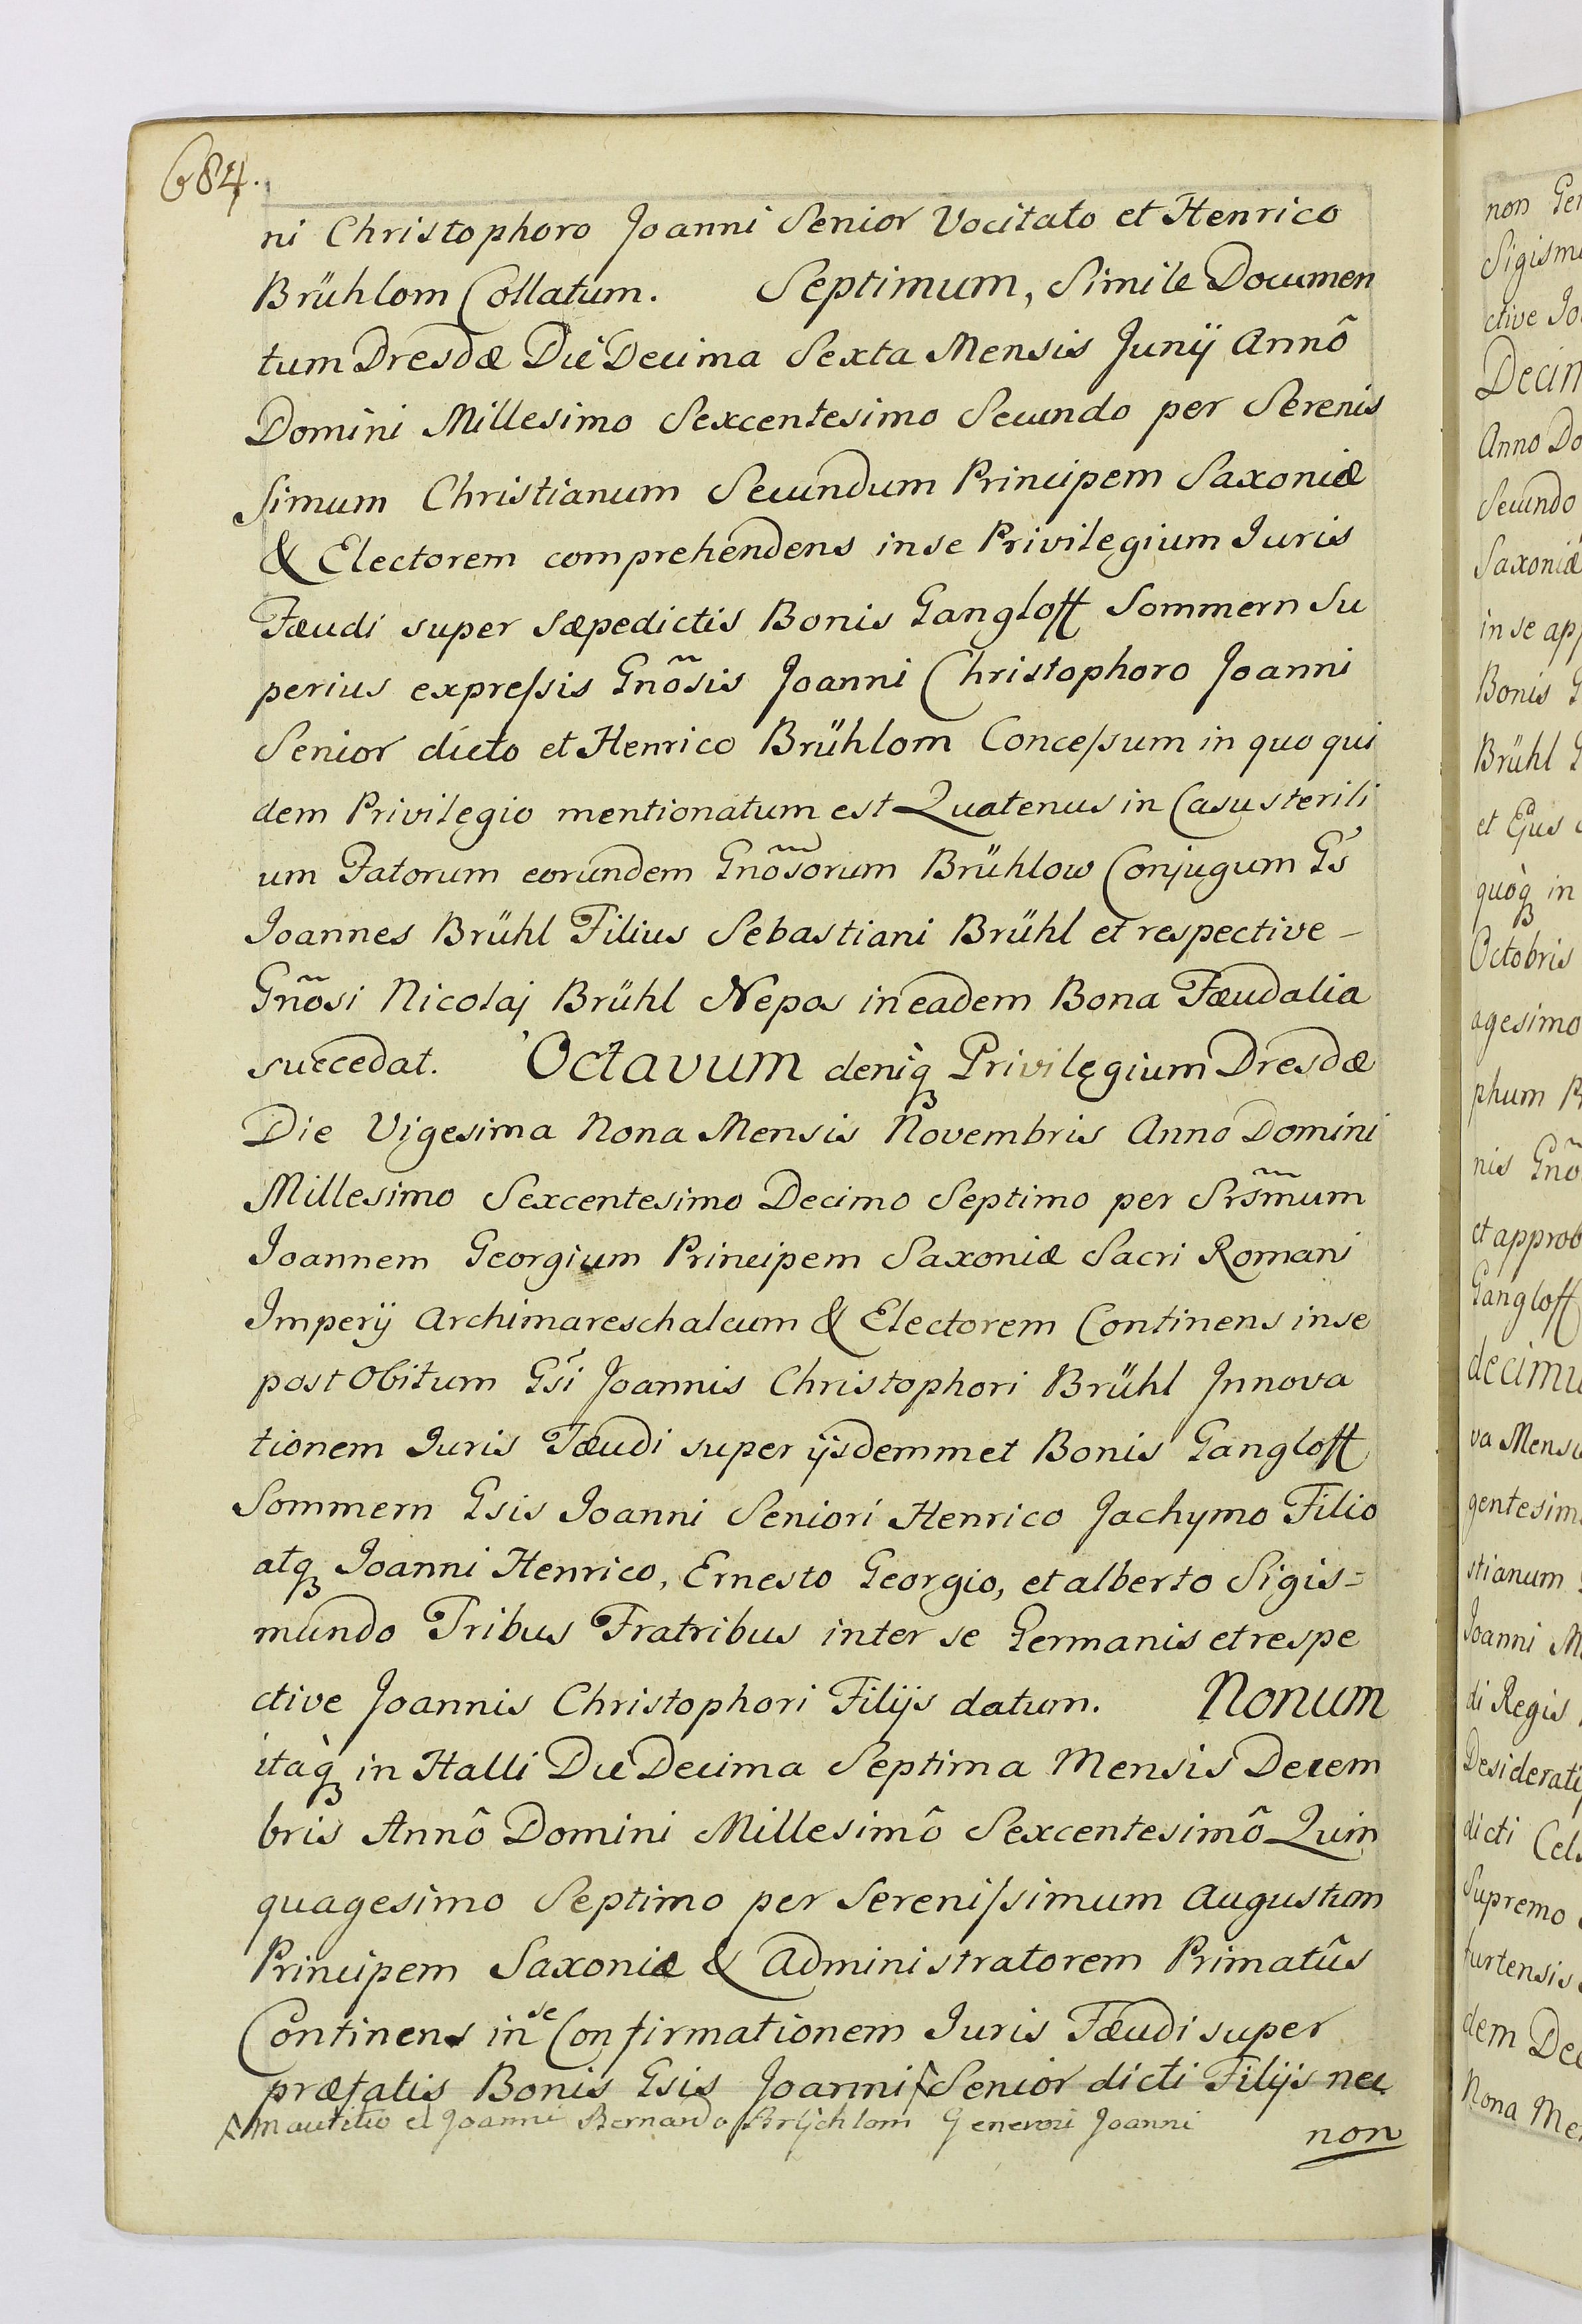 684.
ni Christophoro Joanni Senior Vocitato et Henrico
Brühlom Collatum. Septimum, Simile Documen
tum Dresdæ Die Decima Sexta Mensis Junÿ Annô
Domini Millesimo Sexcentesimo Secundo per Serenis
simum Christianum Secundum Principem Saxoniæ
& Electorem comprehendens in se Privilegium Juris
Fæudi super sæpedictis Bonis Gangloff Sommern Su
perius expreſsis Gnõsis Joanni Christophoro Joanni
Senior dicto et Henrico Brühlom Conceſsum in quo qui
dem Privilegio mentionatum est Quatenus in Casu sterili
um Fatorum eorundem Gnõsorum Brühlow Conjugum Gs̃
Joannes Brühl Filius Sebastiani Brühl et respective -
Gnõsi Nicolaj Brühl Nepos in eadem Bona Fæudalia
succedat. Octavum deniq̀ Privilegium Dresdæ
Die Vigesima Nona Mensis Novembris Anno Domini
Millesimo Sexcentesimo Decimo Septimo per Srsm̃um
Joannem Georgium Principem Saxoniæ Sacri Romani
Imperÿ Archimareschalcum & Electorem Continens in se
post Obitum Gs̃i Joannis Christophori Brühl Innova
tionem Juris Fæudi super ÿsdemmet Bonis Gangloff
Sommern Gsis Joanni Seniori Henrico Jachymo Filio
atq Joanni Henrico, Ernesto Georgio, et alberto Sigis=
mundo Tribus Fratribus inter se Germanis et respe
ctive Joannis Christophori Filijs datum. Nonum
itaq̀ in Halli Die Decima Septima Mensis Decem
bris Annô Domini Millesimô Sexcentesimô Quin
quagesimo Septimo per Sereniſsimum Augustum
Principem Saxoniæ & Administratorem Primatûs
Continens in se Confirmationem Juris Fæudi super
præfatis Bonis Gsis Joanni Senior dicti Filijs nec
Mauritio et Joanni Bernardo Brÿchlom Generori Joanni
non
non Ger
Sigismu
ctive Jo
Decim
Anno Do
Secundo
Saxoniæ
in se app
Bonis G
Brühl G
et Ejus
quoq̀ in
Octobris
agesimo
phum Pr
nis Gnõ
et approb
Gangloff
decimu
va Mensis
gentesim
stianum
Joanni M
di Regis
Desiderati
dicti Cels
Supremo
furtensis
dem Dec
Nona Men